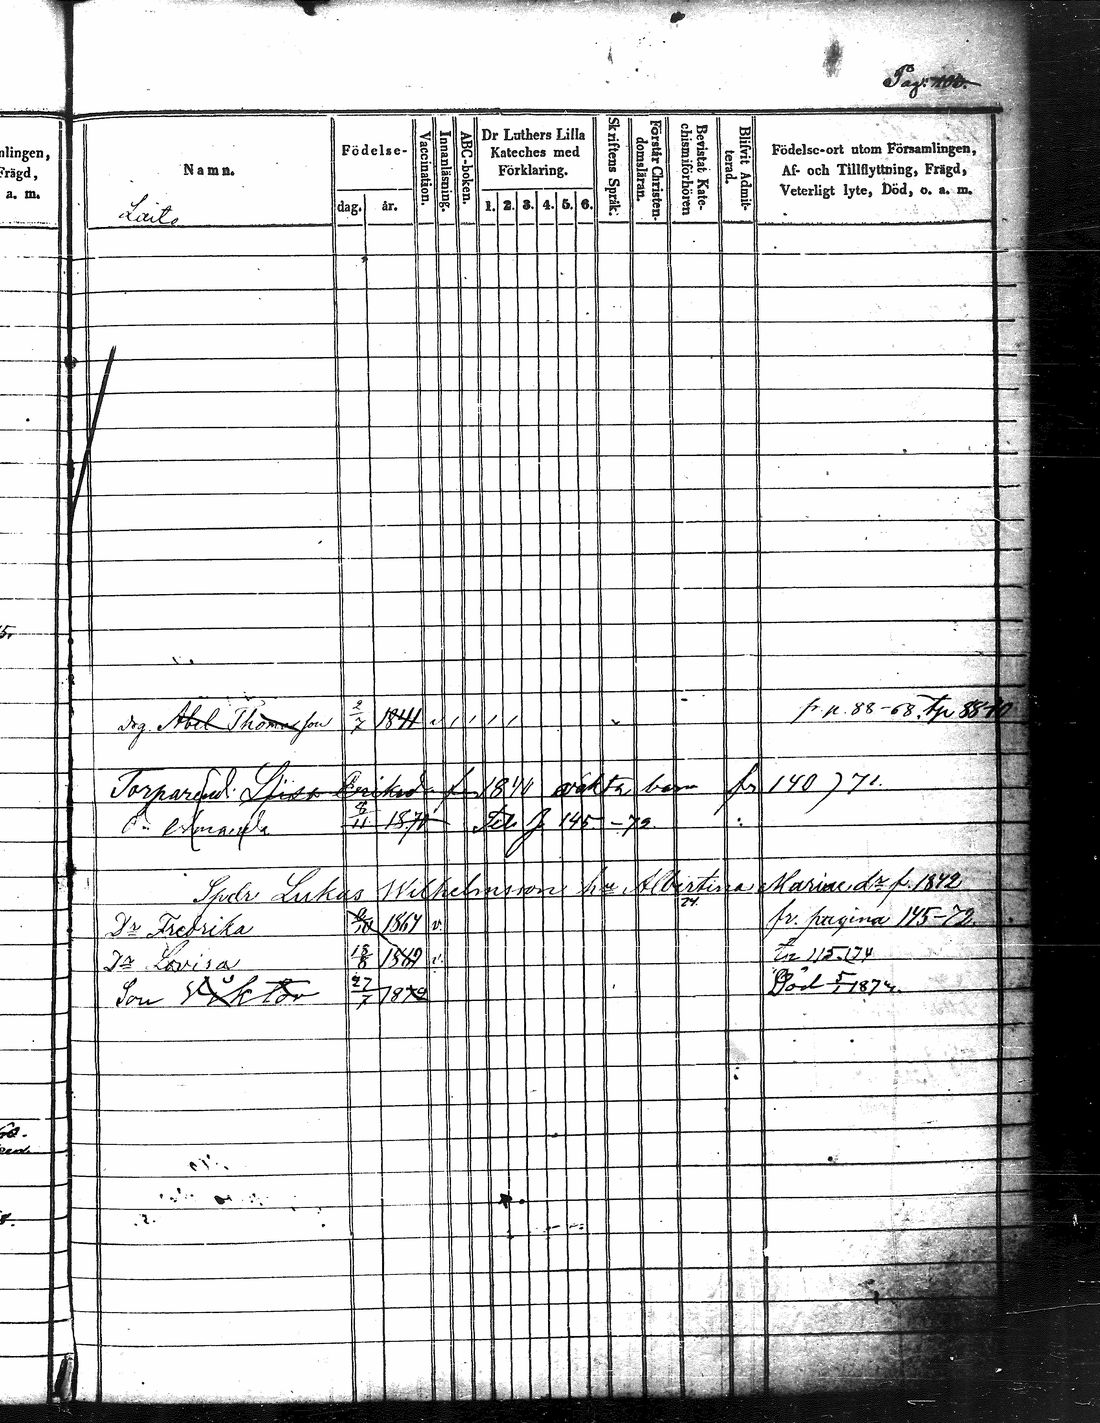 Pag. 100.
mlingen,
Frägd,
a. m.
Namn.
Födelse-
dag. år.
Vaccination.
Innanläsning.
ABC-boken.
Dr Luthers Lilla
Kateches med
Förklaring.
1. 2. 3. 4. 5. 6.
Skriftens Språk.
Förstår Christen-
domsläran.
Bevistat Kate-
chismiförhören
Blifvit Admit-
terad.
Födelse-ort utom Församlingen,
Af- och Tillflyttning, Frägd,
Veterligt lyte, Död, o. a. m.
Laits
drg. Abel Thomasson 2/7 1844 fr. p. 88-68. 88-70
Torpare Eriksd. 1844 oäkta barn fr 140 71.
Dr Amanda 8/11 1870 Till 145-72.
Spdr Lukas Wilhelmsson hu Albertina Marias dr f. 1842
24.
Dr Fredrika 1867 v. fr. pagina 145-72.
Dr Lovisa 13/8 1869 v. 115-174
Son Viktor 27/7 1872 Död 5/1 1874.